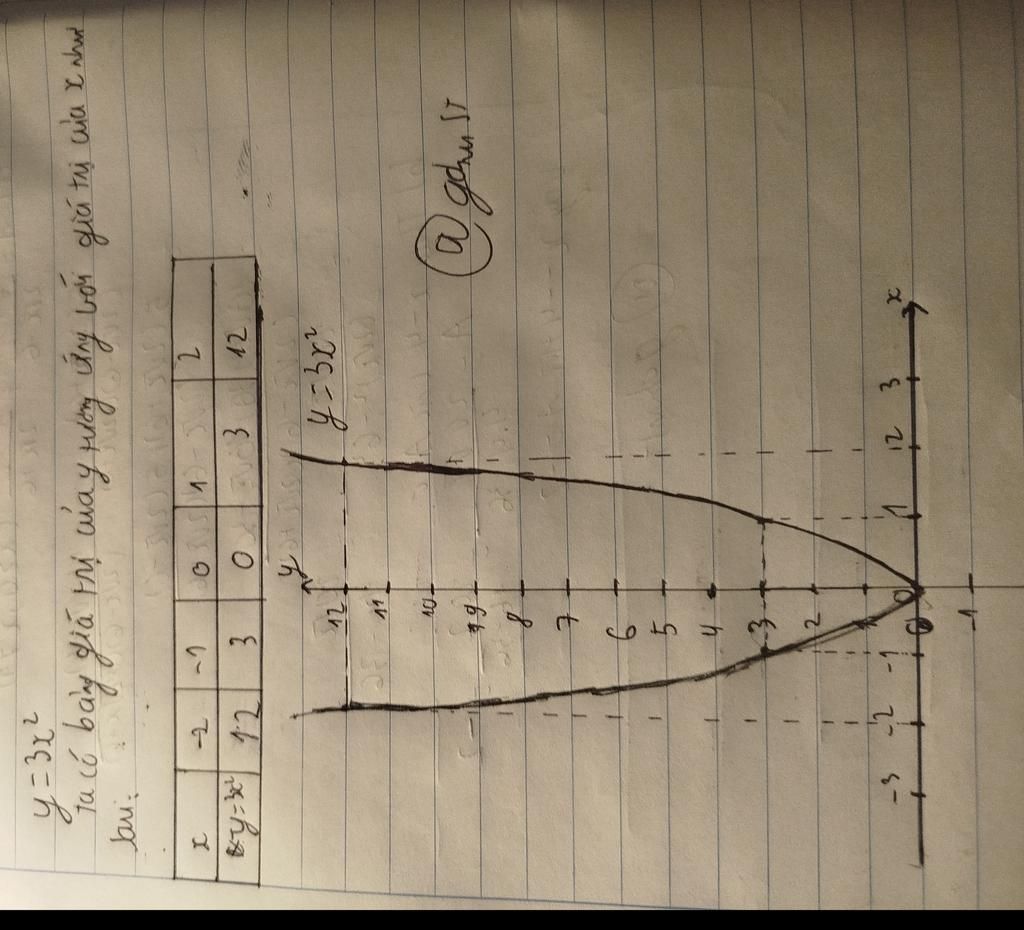 y = 3x²
Ta có bảng giá trị của y tương ứng với giá trị của x như
sau:
x -2 -1 0 1 2
y=3x² 12 3 0 3 12
y
y = 3x²
12
11
10
9
8
7
6
5
4
3
2
1
-3 -2 -1 0 1 2 3 x
-1